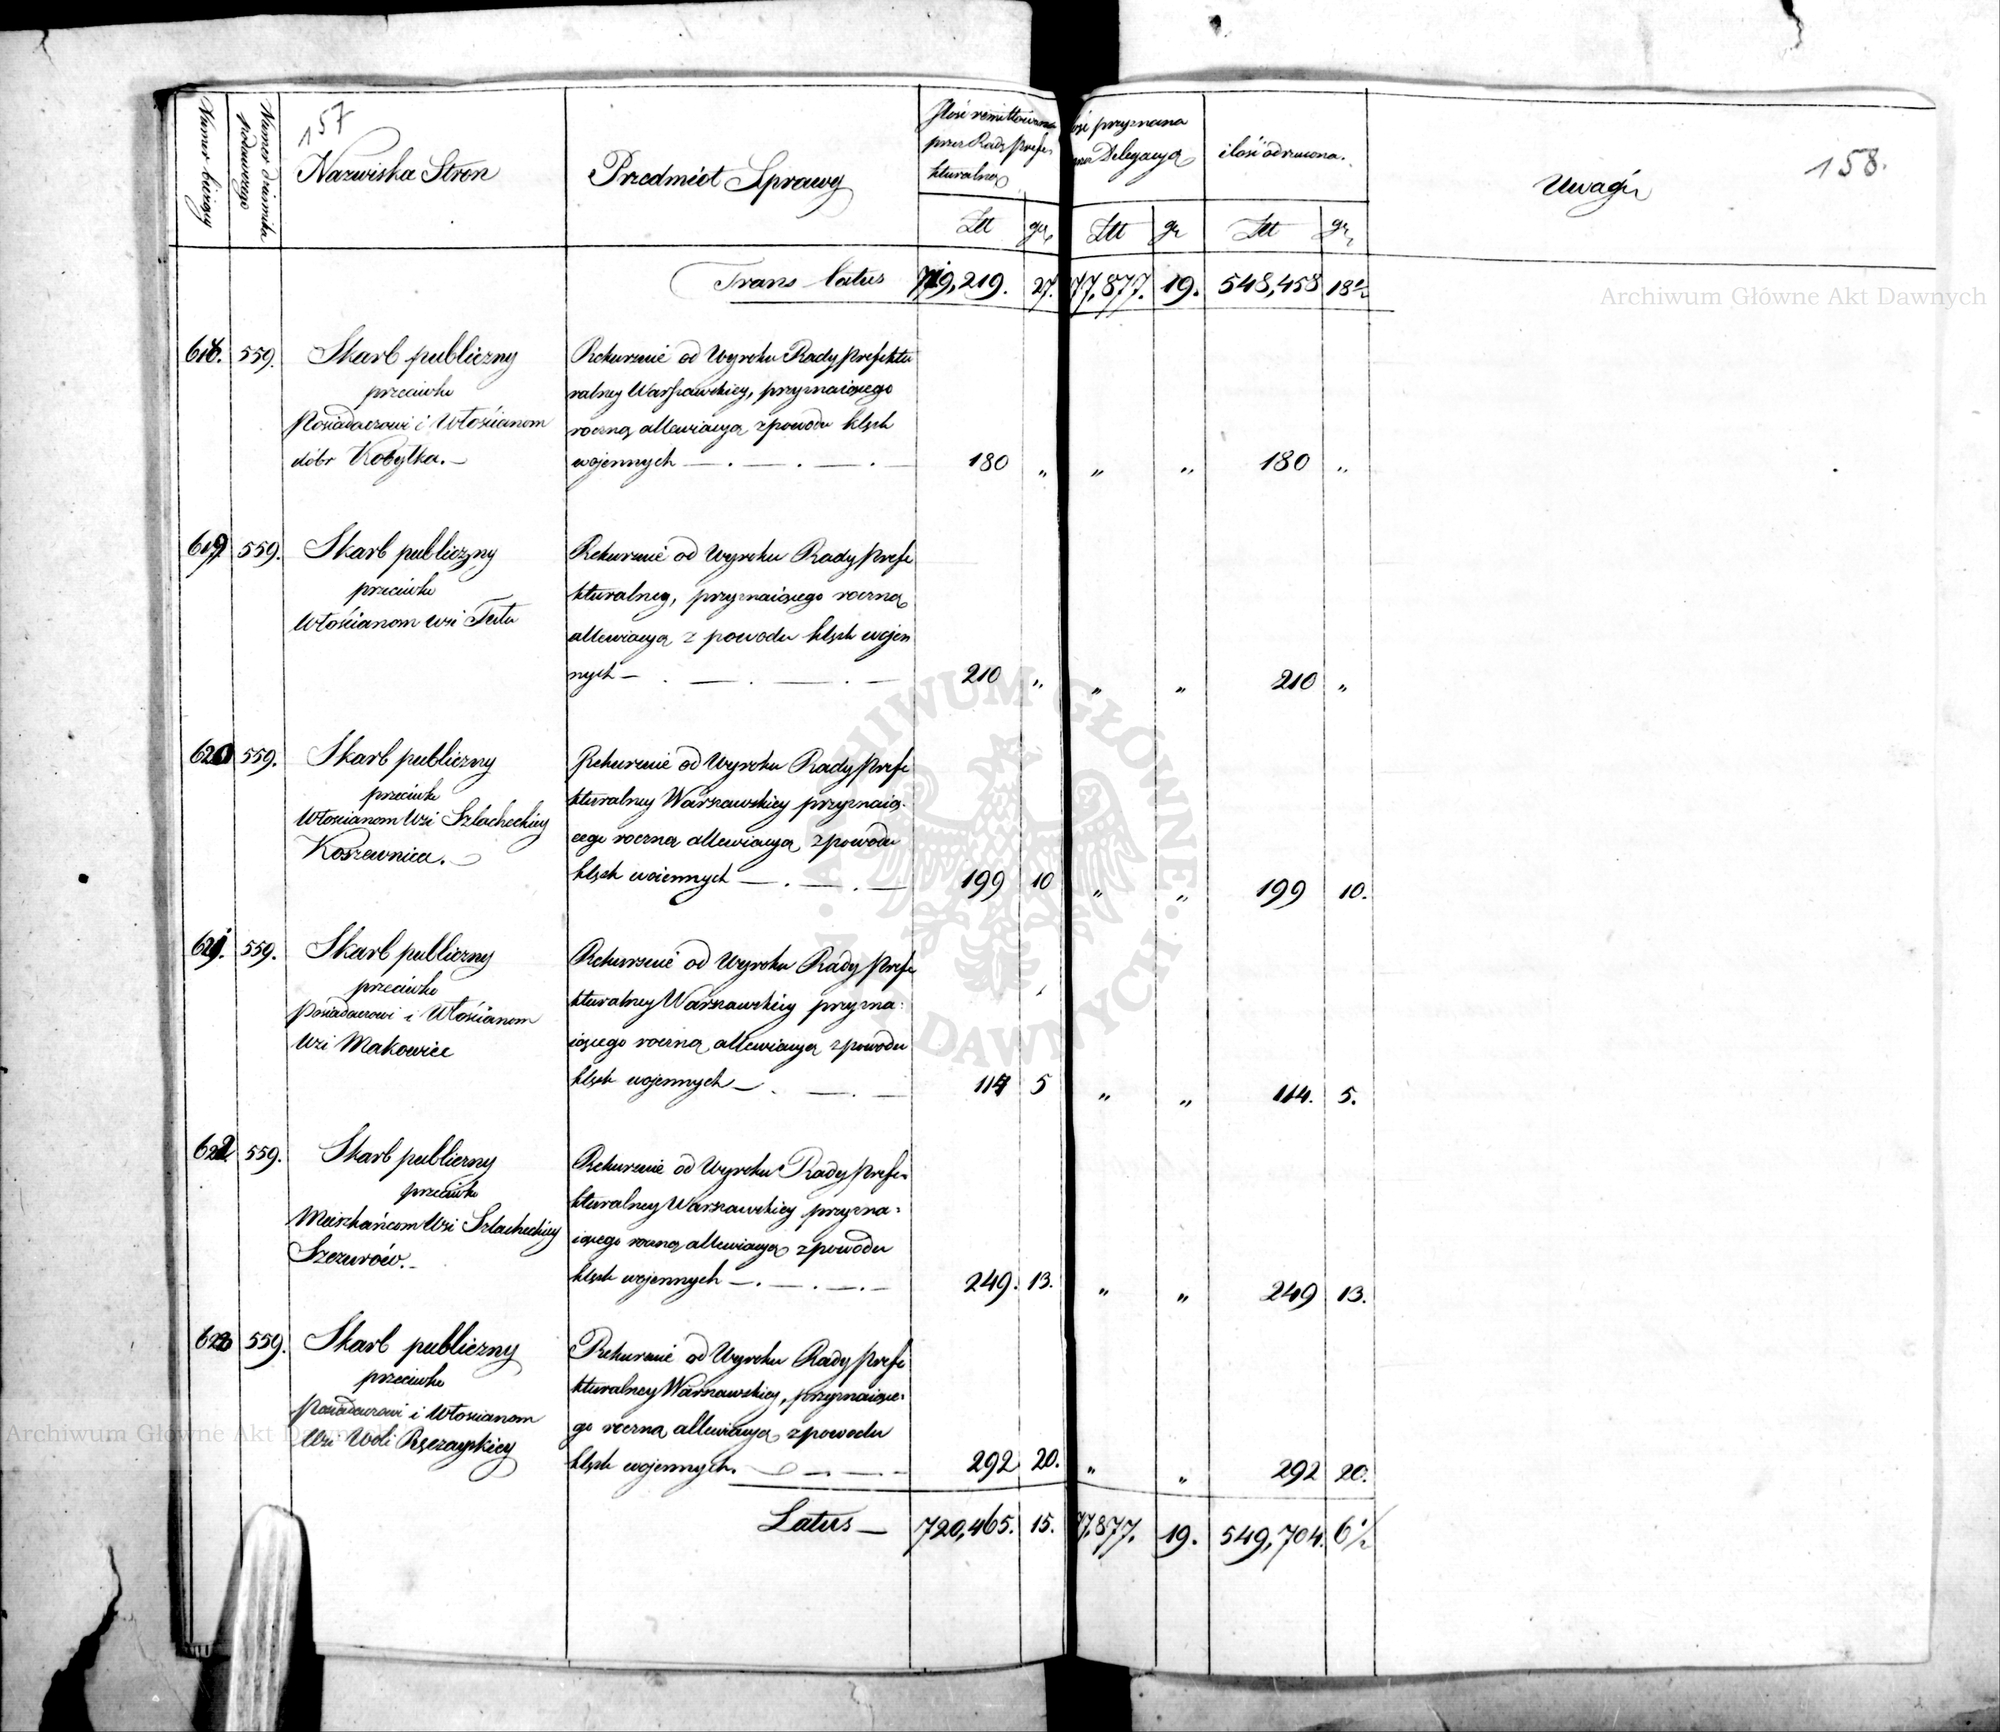 157
158.
Numer bieżący
Numer dziennika
podawczego
Nazwiska Stron
Przedmiót Sprawy
Ilość remittowana
przez Radę Prefe
kturalną
Złt gr
ość przyznana
przez Delegacyą
Złt gr
ilość odrzucona.
Złt gr
Uwagi
Trans latus 719,219. 27. 77,877. 19. 548,458 18½
618. 559. Skarb publiczny
przeciwko
Posiadaczowi i Włościanom
dóbr Kobyłka.—
Rekursuie od Wyroku Rady Prefektu
ralney Warszawskiey, przyznaiącego
roczną allewiacyą z powodu klęsk
wojennych — . — . — . — 180 „ „ „ 180 „
619 559. Skarb publiczny
przeciwko
Włościanom Wsi
Rekursuie od Wyroku Rady Prefe
kturalney, przyznaiącego roczną
allewiacyą z powodu klęsk wojen
nych — . — . — . — 210 „ „ „ 210 „
620 559. Skarb publiczny
przeciwko
Włościanom Wsi Szlacheckiey
Koszewnica.
Rekursuie od Wyroku Rady Prefe
kturalney Warszawskiey przyznaią-
cego roczną allewiacyą z powodu
klęsk woiennych — . — . — 199 10 „ „ 199 10.
621. 559. Skarb publiczny
przeciwko
Posiadaczowi i Włościanom
Wsi Makowiec
Rekursuie od Wyroku Rady Prefe
kturalney Warszawskiey przyzna-
iącego roczną allewiacyą z powodu
klęsk wojennych — . — . — 114 5 „ „ 114. 5.
622 559. Skarb publiczny
przeciwko
Meiszkańcom Wsi Szlacheckiey
Szczurów.—
Rekursuie od Wyroku Rady Prefe-
kturalney Warszawskiey przyzna-
iącego roczną allewiacyą z powodu
klęsk wojennych — . — . — . — 249. 13. „ „ 249 13.
623 559. Skarb publiczny
przeciwko
Posiadaczowi i Włościanom
Wsi Woli Ręczayskiey
Rekursuie od Wyroku Rady Prefe
kturalney Warszawskiey, przyznaiące-
go roczną allewiacyą z powodu
klęsk wojennych. — — — 292 20. „ „ 292 20.
Latus — 720,465. 15. 77,877. 19. 549,704. 6½
Archiwum Główne Akt Dawnych
ARCHIWUM GŁÓWNE AKT DAWNYCH
Archiwum Główne Akt Dawnych